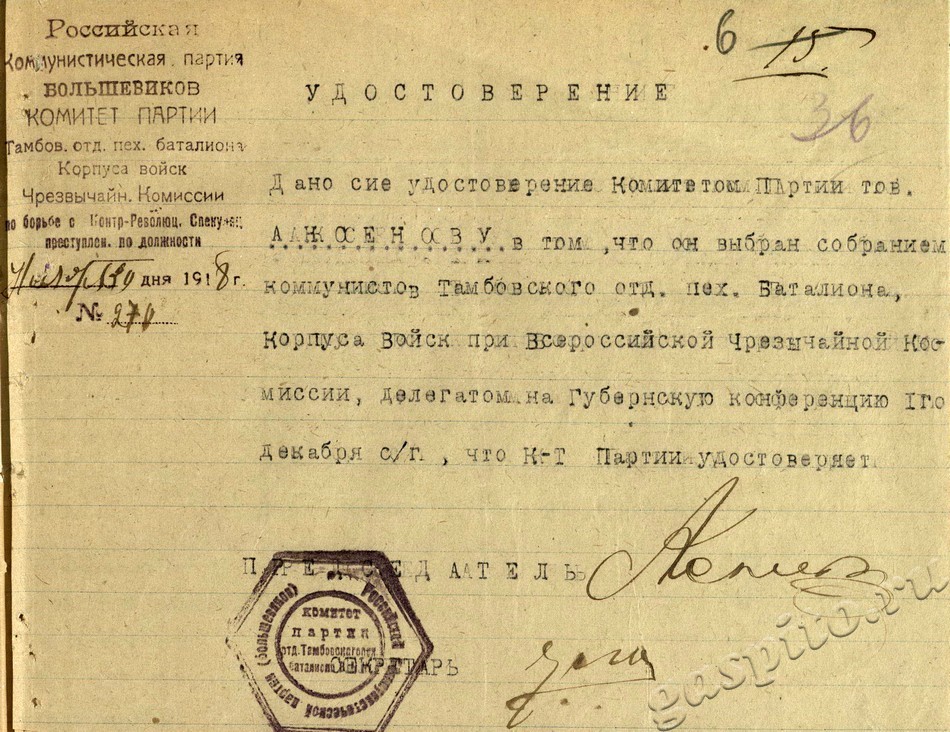 Российская
Коммунистическая партия
БОЛЬШЕВИКОВ
КОМИТЕТ ПАРТИИ
Тамбов. отд. пех. баталиона
Корпуса войск
Чрезвычайн. Комиссии
по борьбе с Контр-Революц. Спекуляц.
преступлен. по должности
Ноября 30 дня 1918 г.
№ 270
6
15
36
УДОСТОВЕРЕНИЕ
Дано сие удостоверение Комитетом Партии тов.
в том, что он выбран собранием
коммунистов Тамбовского отд. пех. Баталиона,
Корпуса Войск при Всероссийской Чрезычайной Ко-
миссии, делегатом на Губернскую конференцию 1го
декабря с/г. , что К-Т Партии удостоверяет
ПРЕДСЕДАТЕЛЬ
СЕКРЕТАРЬ
Российской Коммунистической партии (большевиков)
комитет
партии
отд. Тамбовского пех.
баталиона
gaspito.ru